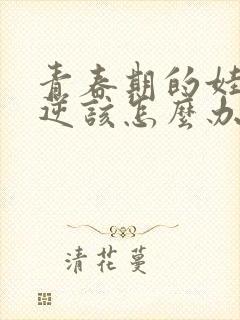 青春期的娃
逆該怎麼办
清花蔓